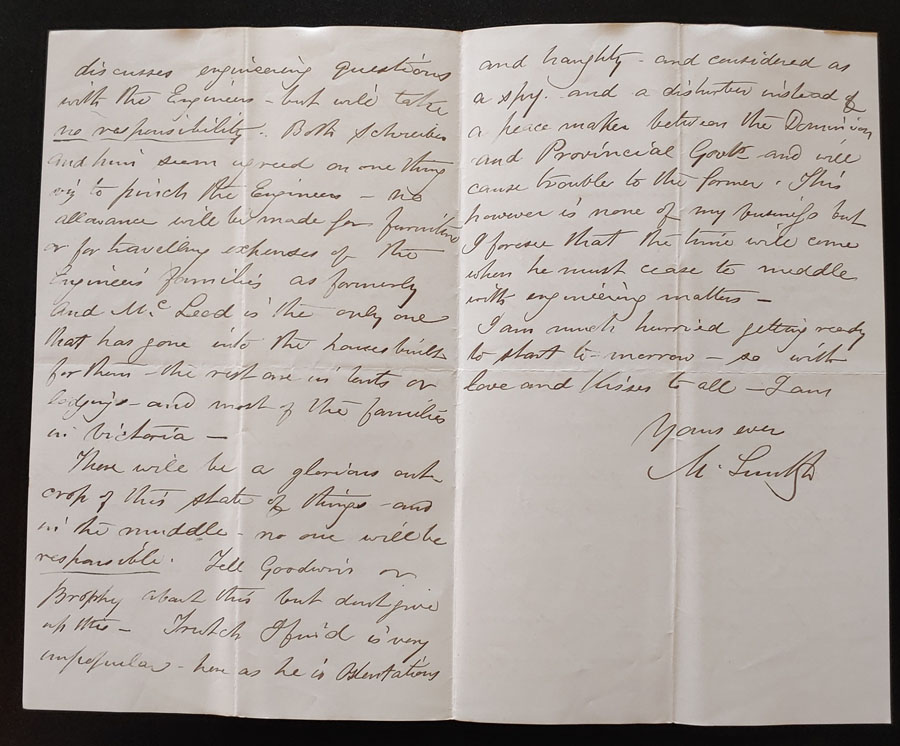 discusses engineering questions
with the Engineers - but will take
no responsibility. Both Schreiber
and him seem agreed on one thing
viz to pinch the Engineers - no
allowance will be made for furniture
or for travelling expenses of the
Engineers families as formerly
and Mc Leod is the only one
that has gone into the houses built
for them - the rest are in tents or
lodgings - and most of the families
in Victoria -
There will be a glorious out
crop of this state of things - and
in the muddle - no one will be
responsible. Tell Goodwin or
Brophy about this but dont give
up this - Trutch I find is very
unpopular - here as he is Ostentatious
and haughty - and considered as
a spy. and a disturber instead of
a peace maker between the Dominion
and Provincial Govts and will
cause trouble to the former. This
however is none of my business but
I foresee that the time will come
when he must cease to meddle
with engineering matters -
I am much hurried getting ready
to start to-morrow - so with
love and Kisses to all - I am
Yours ever
M. Smith